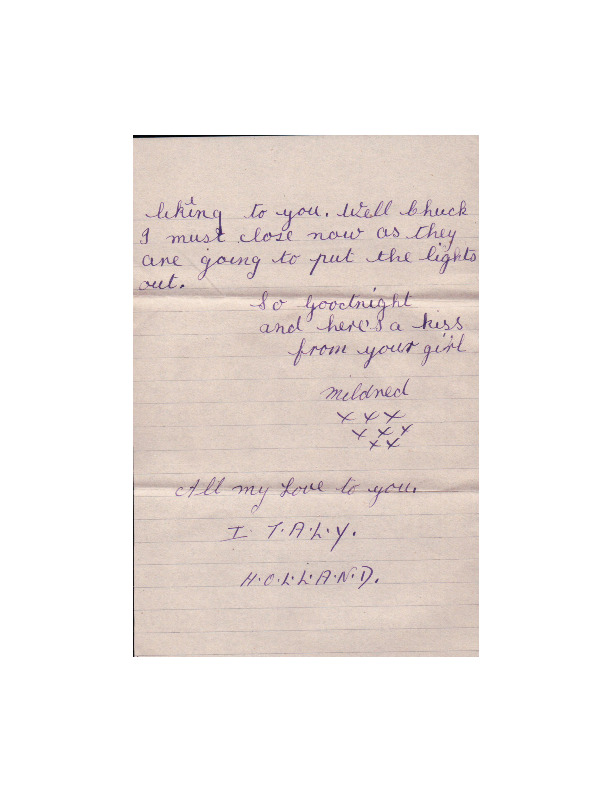 liking to you. Well Chuck
I must close now as they
are going to put the lights
out.
So Goodnight
and here's a kiss
from your girl
Mildred
x x x
x x x
x x
All my Love to you.
I. T.A.L.Y.
H.O.L.L.A.N.D.